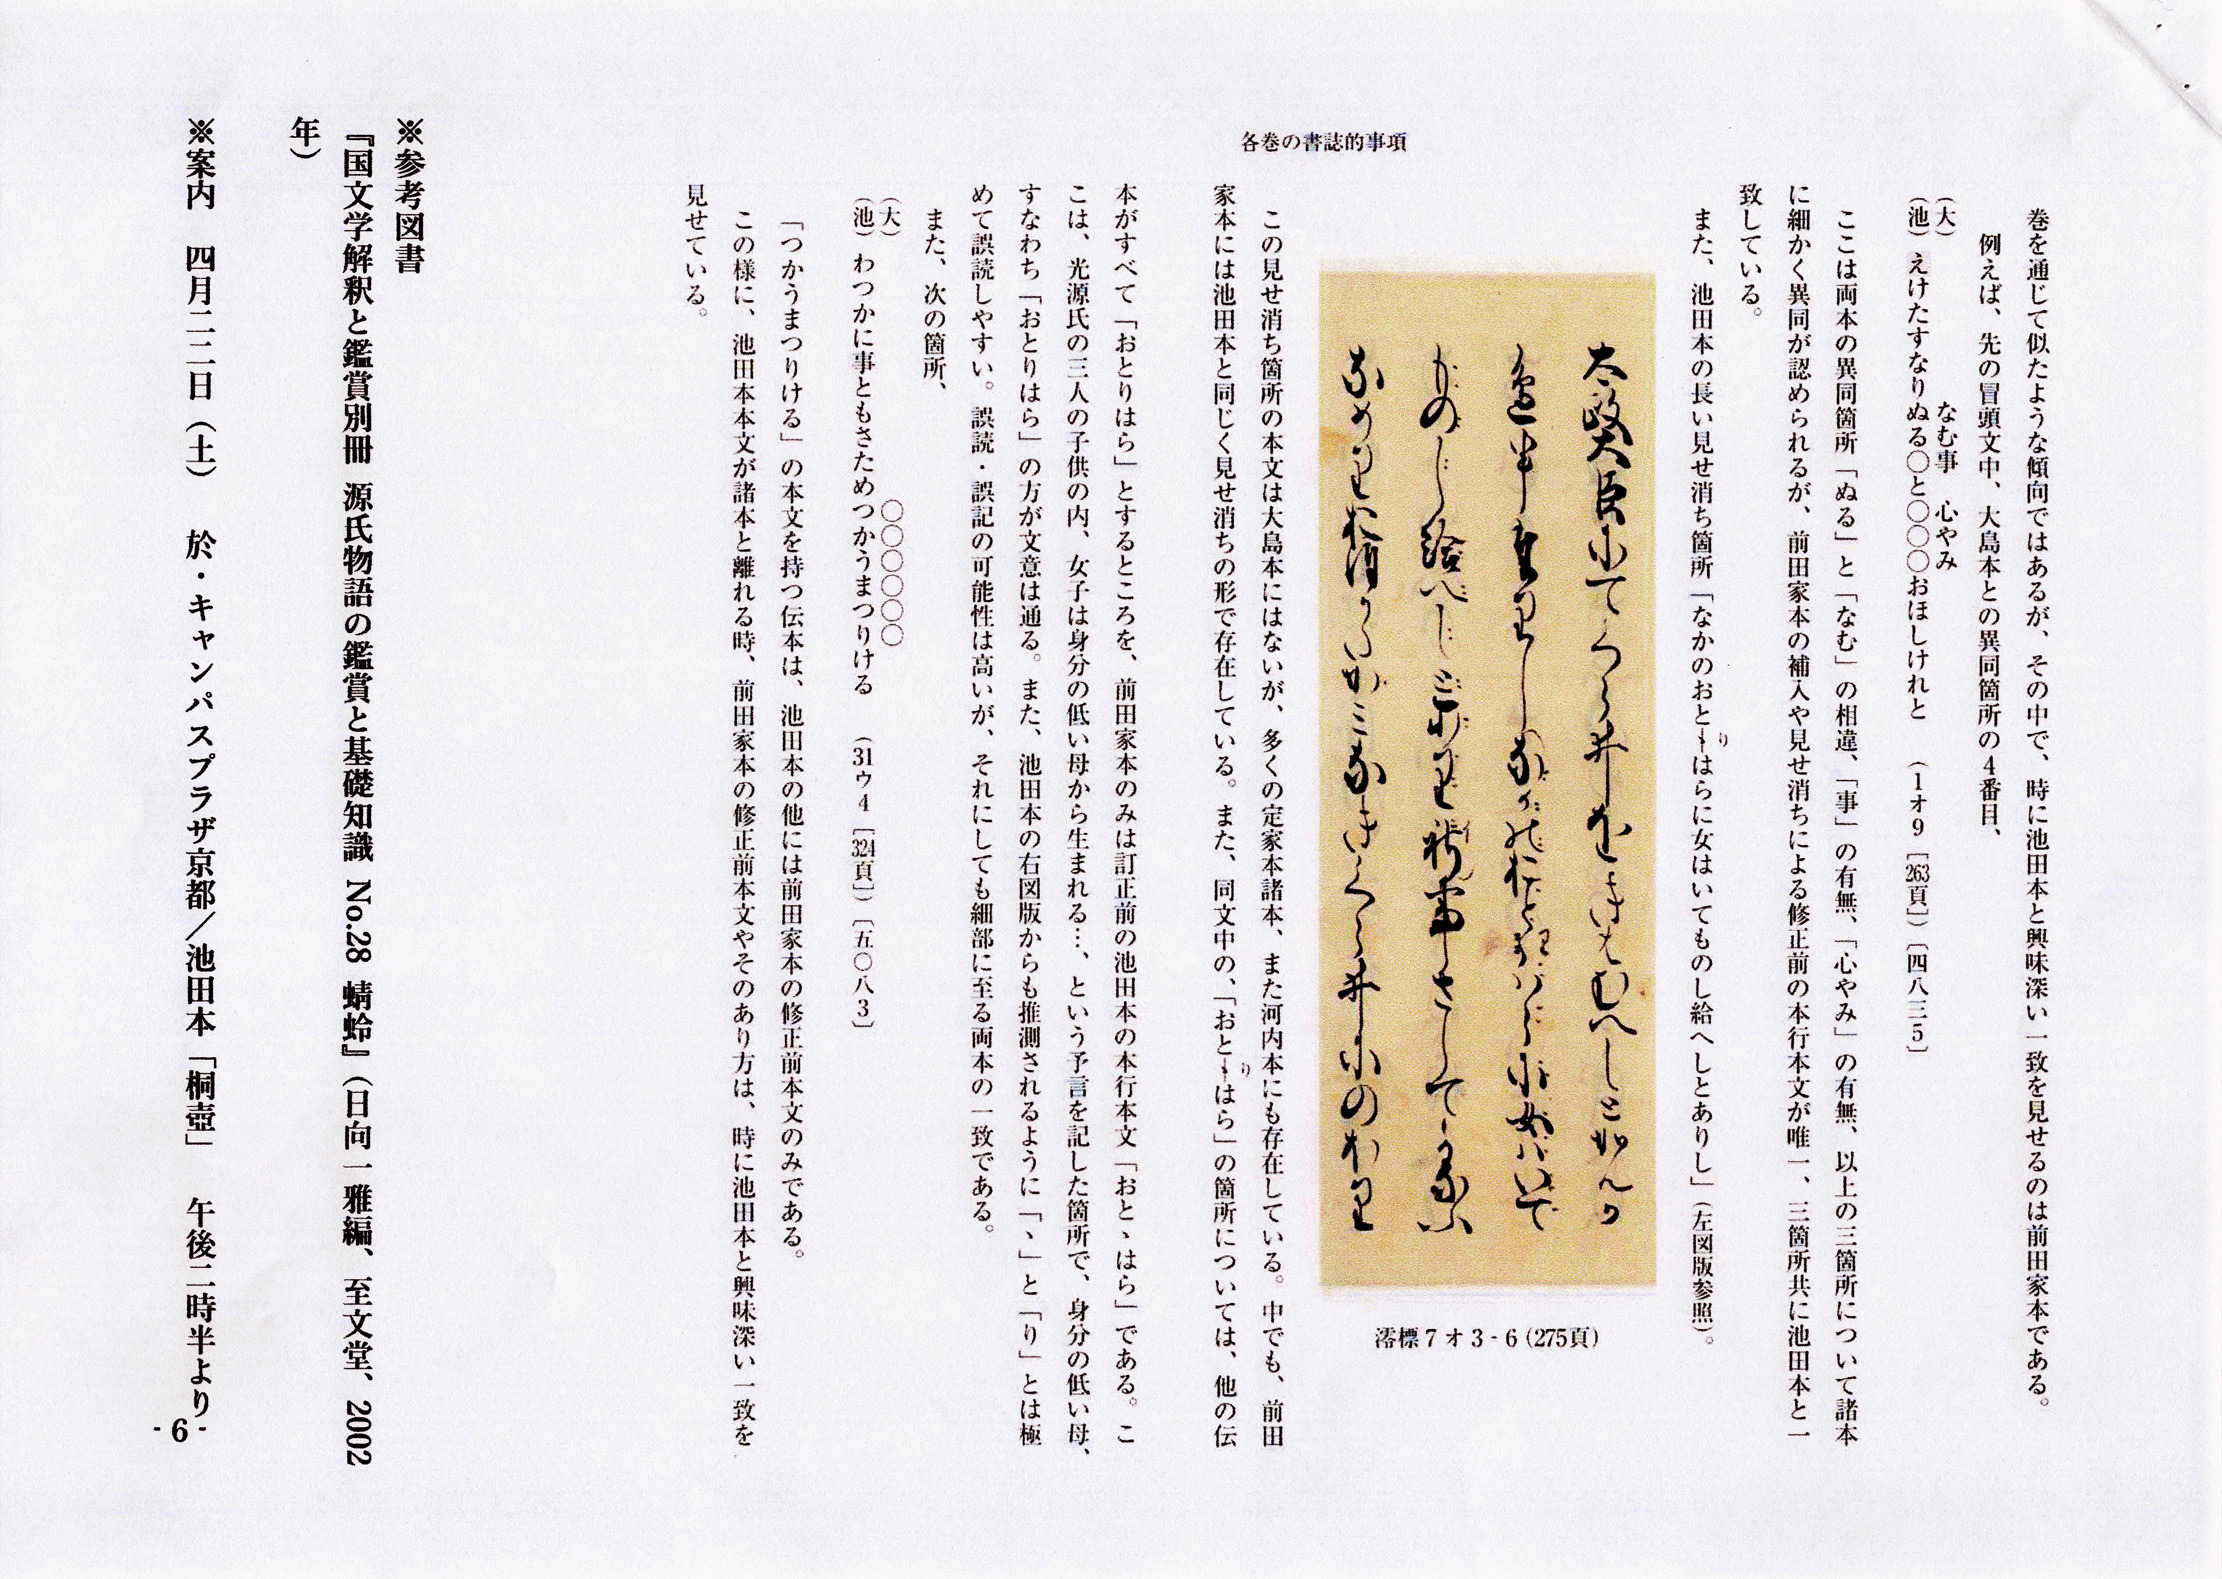 各巻の書誌的事項
巻を通じて似たような傾向ではあるが、その中で、時に池田本と興味深い一致を見せるのは前田家本である。
例えば、先の冒頭文中、大島本との異同箇所の4番目、
（大）　なむ事　心やみ
（池）えけたすなりぬる〇と〇〇〇おほしけれと　（1オ9［263頁］）［四八三5］
ここは両本の異同箇所「ぬる」と「なむ」の相違、「事」の有無、「心やみ」の有無、以上の三箇所について諸本
に細かく異同が認められるが、前田家本の補入や見せ消ちによる修正前の本行本文が唯一、三箇所共に池田本と一
致している。
また、池田本の長い見せ消ち箇所「なかのおとゝりはらに女はいてものし給へしとありし」（左図版参照）。
太政大臣にてくらゐをきはむへし
ものし給へし
澪標7オ3-6（275頁）
この見せ消ち箇所の本文は大島本にはないが、多くの定家本諸本、また河内本にも存在している。中でも、前田
家本には池田本と同じく見せ消ちの形で存在している。また、同文中の、「おとゝりはら」の箇所については、他の伝
本がすべて「おとりはら」とするところを、前田家本のみは訂正前の池田本の本行本文「おとゝはら」である。こ
こは、光源氏の三人の子供の内、女子は身分の低い母から生まれる…、という予言を記した箇所で、身分の低い母、
すなわち「おとりはら」の方が文意は通る。また、池田本の右図版からも推測されるように「ゝ」と「り」とは極
めて誤読しやすい。誤読・誤記の可能性は高いが、それにしても細部に至る両本の一致である。
また、次の箇所、
（大）　〇〇〇〇〇〇
（池）わつかに事ともさためつかうまつりける　（31ウ4［324頁］）［五〇八3］
「つかうまつりける」の本文を持つ伝本は、池田本の他には前田家本の修正前本文のみである。
この様に、池田本本文が諸本と離れる時、前田家本の修正前本文やそのあり方は、時に池田本と興味深い一致を
見せている。
※参考図書
『国文学解釈と鑑賞別冊 源氏物語の鑑賞と基礎知識 No.28 蜻蛉』（日向一雅編、至文堂、2002
年）
※案内　四月二二日（土）　於・キャンパスプラザ京都／池田本「桐壺」　午後二時半より
-6-